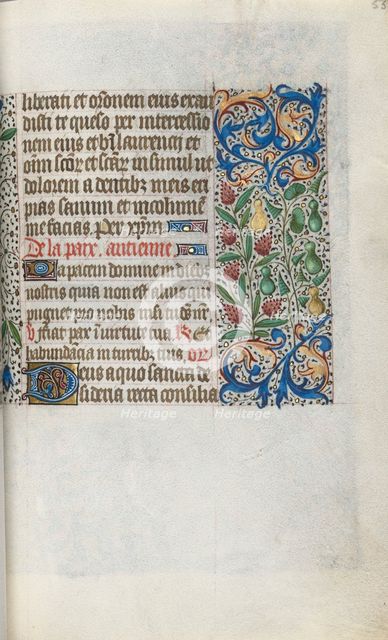 53
liberati et orõnem eius exau
disti te queso per intercessio
nem eius et bti laurencij et
oim scõr et scãr in simul ut
dolorem a dentibz meis eri
pias sanum et incolume
me facias. Per xpm.
De la paix. antienne
Da pacem domine in diebz
nostris quia non est alius qui
pugnet pro nobis nisi tu ds nr̃
V fiat pax in virtute tua R. Et
habundãcia in turribz tuis. Or.
Deus a quo sancta de
sideria recta consilia
Heritage
Heritage
Heritage
Heritage